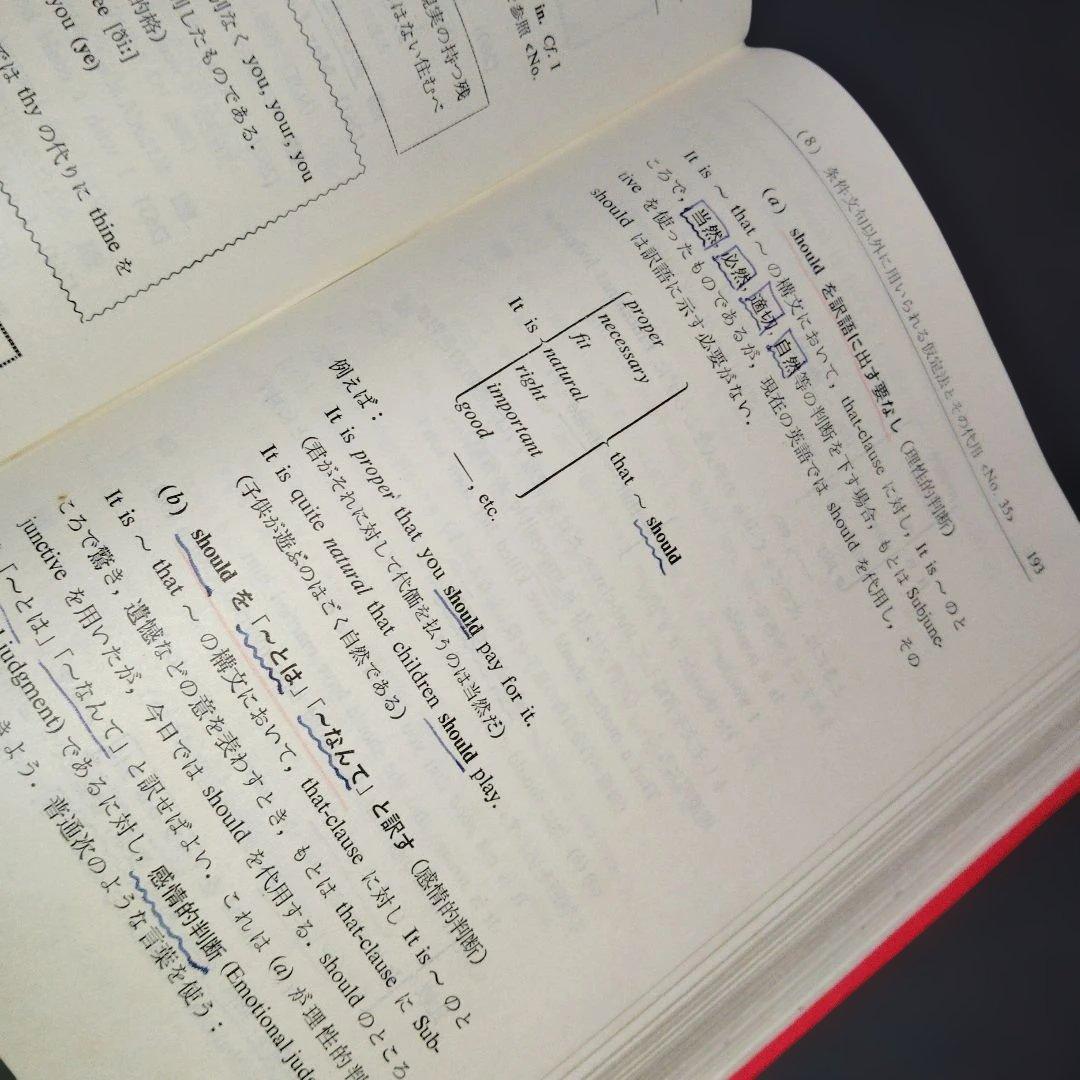 in. Cf. I
参照 <No.
現実の持つ残
はない住むべ
別なく you, your, you
則したものである.
的格)
ee [ði:]
you (ye)
では thy の代りに thine を
(8) 条件文句以外に用いられる仮定法とその代用 <No. 35> 193
(a) should を訳語に出す要なし (理性的判断)
It is ~ that ~ の構文において, that-clause に対し, It is ~ のと
ころで, 当然, 必然, 適切, 自然等の判断を下す場合, もとは Subjunc-
tive を使ったものであるが, 現在の英語では should を代用し, その
should は訳語に示す必要がない.
proper
necessary
fit
It is natural that ~ should
right
important
good ——, etc.
例えば:
It is proper that you should pay for it.
(君がそれに対して代価を払うのは当然だ)
It is quite natural that children should play.
(子供が遊ぶのはごく自然である)
(b) should を「~とは」「~なんて」と訳す (感情的判断)
It is ~ that ~ の構文において, that-clause に対し It is ~ のと
ころで驚き, 遺憾などの意を表わすとき, もとは that-clause に Sub-
junctive を用いたが, 今日では should を代用する. should のところ
「~とは」「~なんて」と訳せばよい. これは (a) が理性的判
judgment) であるに対し, 感情的判断 (Emotional jud
きよう. 普通次のような言葉を使う: